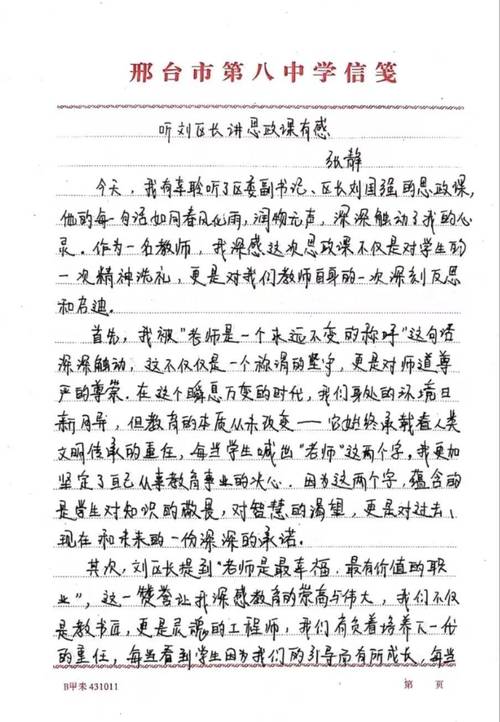 邢台市第八中学信笺
听刘区长讲思政课有感
张静
今天，我有幸聆听了区委副书记、区长刘国强的思政课，
他的每一句话如同春风化雨，润物无声，深深触动了我的心
灵。作为一名教师，我深感这次思政课不仅是对学生的
一次精神洗礼，更是对我们教师自身的一次深刻反思
和启迪.
首先，我被“老师是一个永远不变的称呼”这句话
深深触动，这不仅仅是一个称谓的坚守，更是对师道尊
严的尊崇. 在这个瞬息万变的时代，我们身处的环境日
新月异，但教育的本质从未改变——它始终承载着人类
文明传承的重任，每当学生喊出“老师”这两个字，我更加
坚定了自己从事教育事业的决心. 因为这两个字，蕴含的
是学生对知识的敬畏，对智慧的渴望，更是对过去、
现在和未来的一份深深的承诺.
其次，刘区长提到“老师是最幸福、最有价值的职
业”，这一赞誉让我深感教育的崇高与伟大，我们不仅
是教书匠，更是灵魂的工程师，我们肩负着培养下一代
的重任，每当看到学生因为我们的引导而有所成长，每当
B甲未431011
第 页